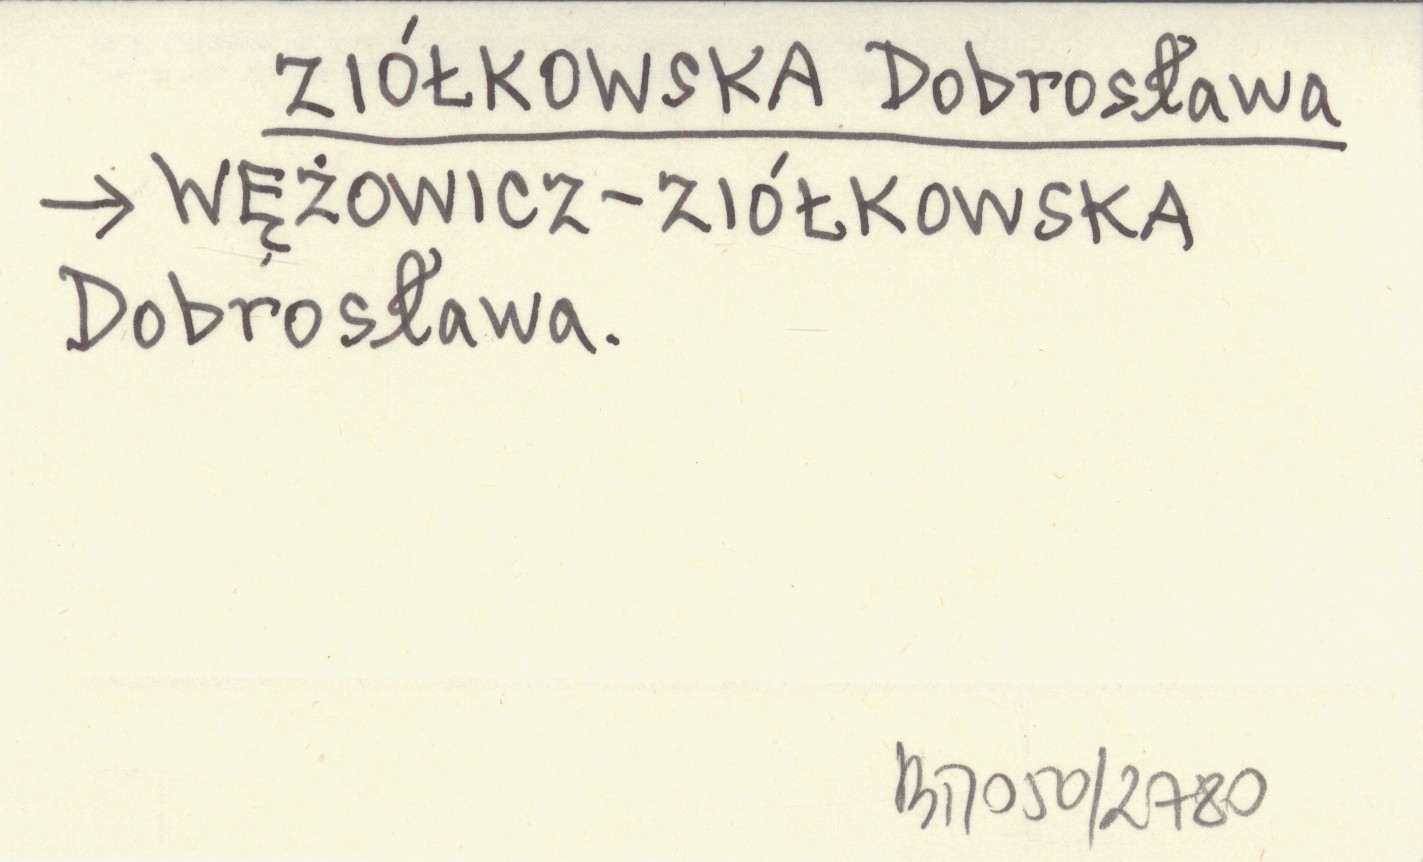 ZIÓŁKOWSKA Dobrosława
→ WĘŻOWICZ-ZIÓŁKOWSKA
Dobrosława.